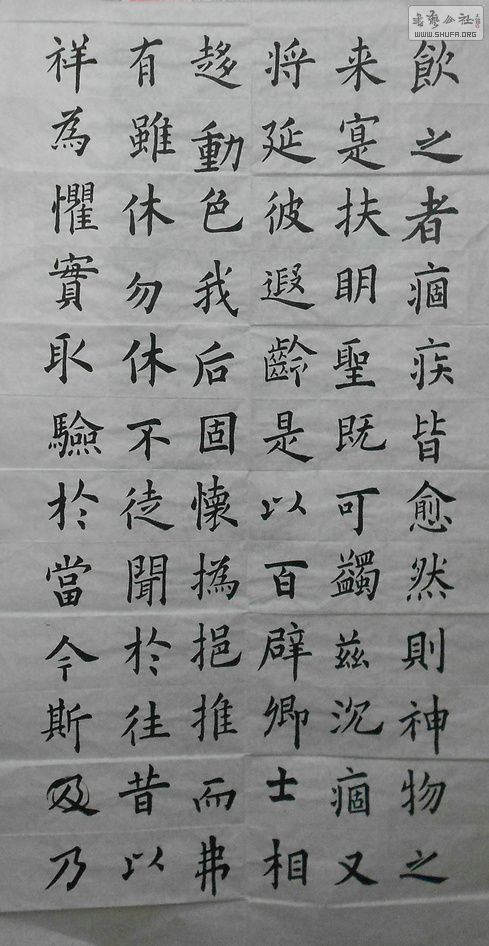 書藝公社
WWW.SHUFA.ORG
飲之者痼疾皆愈然則神物之
来寔扶明聖既可蠲兹沉痼又
将延彼遐齡是以百辟卿士相
趍動色我后固懷撝挹推而弗
有雖休勿休不徒聞於往昔以
祥為懼實取驗於當今斯及乃